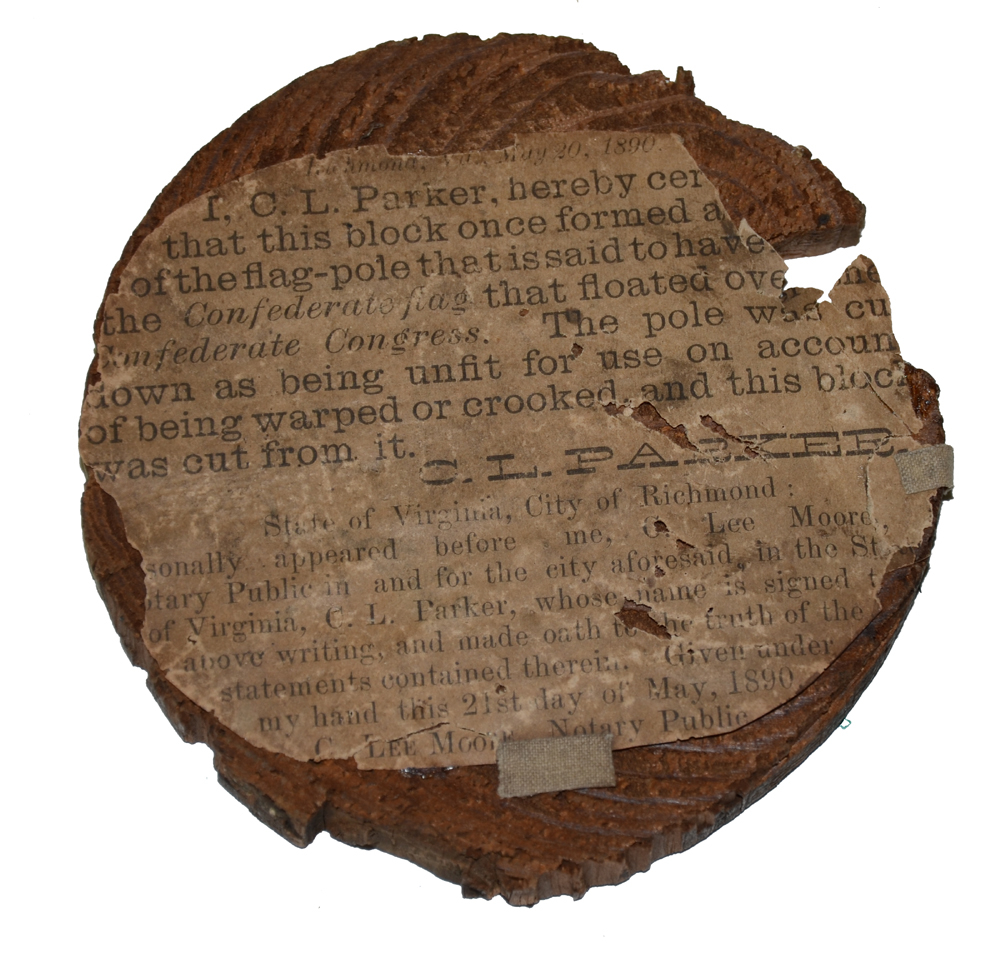 Richmond, Va., May 20, 1890.
I, C. L. Parker, hereby cer
that this block once formed a
of the flag-pole that is said to have
the Confederate flag that floated over the
onfederate Congress. The pole was cu
down as being unfit for use on accoun
of being warped or crooked, and this block
was cut from it.
C. L. PARKER.
State of Virginia, City of Richmond:
sonally appeared before me, C. Lee Moore,
otary Public in and for the city aforesaid, in the St
of Virginia, C. L. Parker, whose name is signed t
above writing, and made oath to the truth of the
statements contained therein. Given under
my hand this 21st day of May, 1890.
C. LEE MOORE, Notary Public